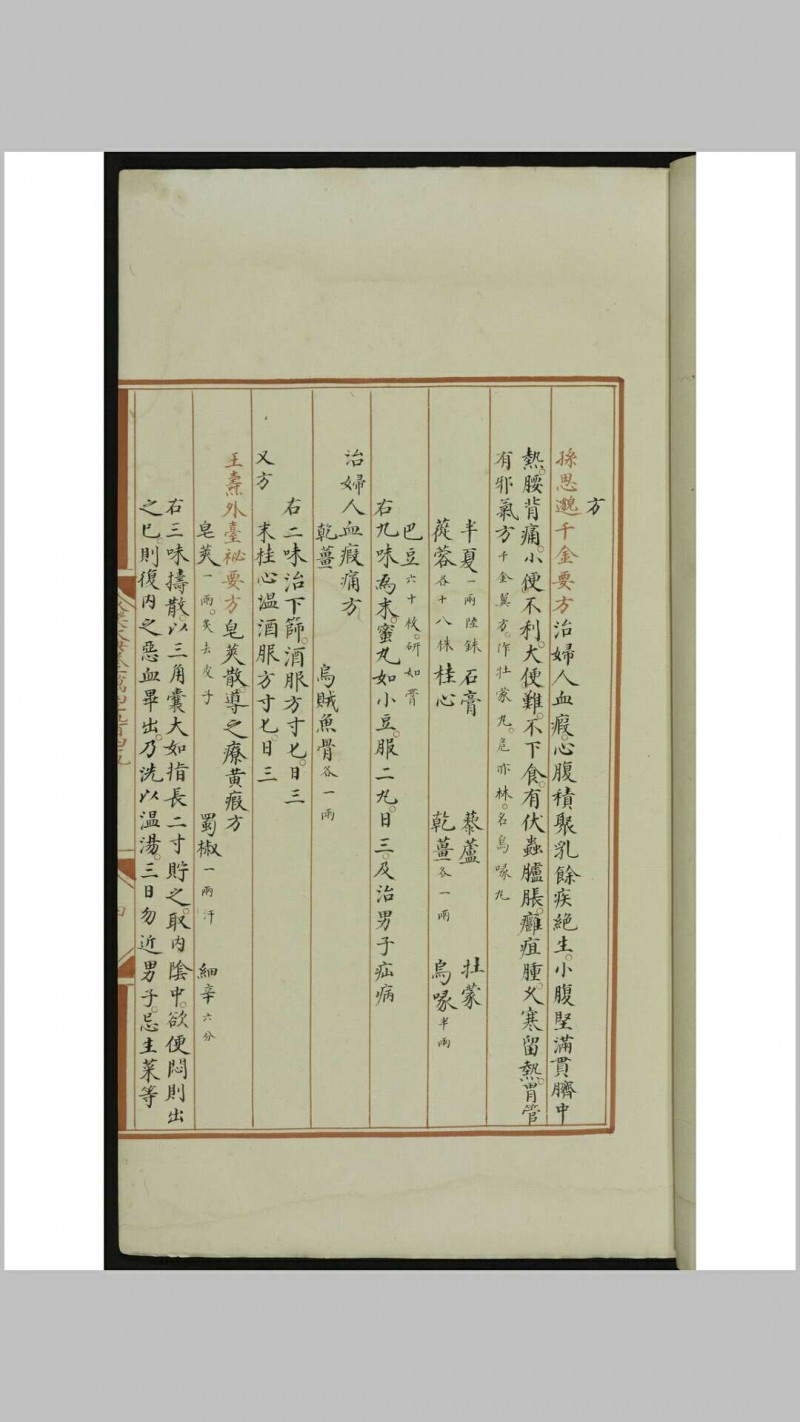 方
孫思邈千金要方治婦人血瘕心腹積聚乳餘疾絶生小腹堅滿貫臍中
熱腰背痛小便不利大便難不下食有伏蟲臚脹癰疽腫久寒留熱胃管
有邪氣方千金翼方作牡蒙丸崔亦林名烏喙丸
半夏一兩陸銖 石膏 藜蘆 牡蒙
蓯蓉各十八銖 桂心 乾薑各一兩 烏喙半兩
巴豆六十枚研如膏
右九味為末蜜丸如小豆服二丸日三及治男子疝病
治婦人血瘕痛方
乾薑 烏賊魚骨各一兩
右二味治下篩酒服方寸匕日三
又方 末桂心温酒服方寸匕日三
王燾外臺祕要方皂莢散導之療黄瘕方
皂莢一兩炙去皮子 蜀椒一兩汗 細辛六分
右三味擣散以三角囊大如指長二寸貯之取内陰中欲便悶則出
之已則復内之惡血畢出乃洗以温湯三日勿近男子忌生菜等